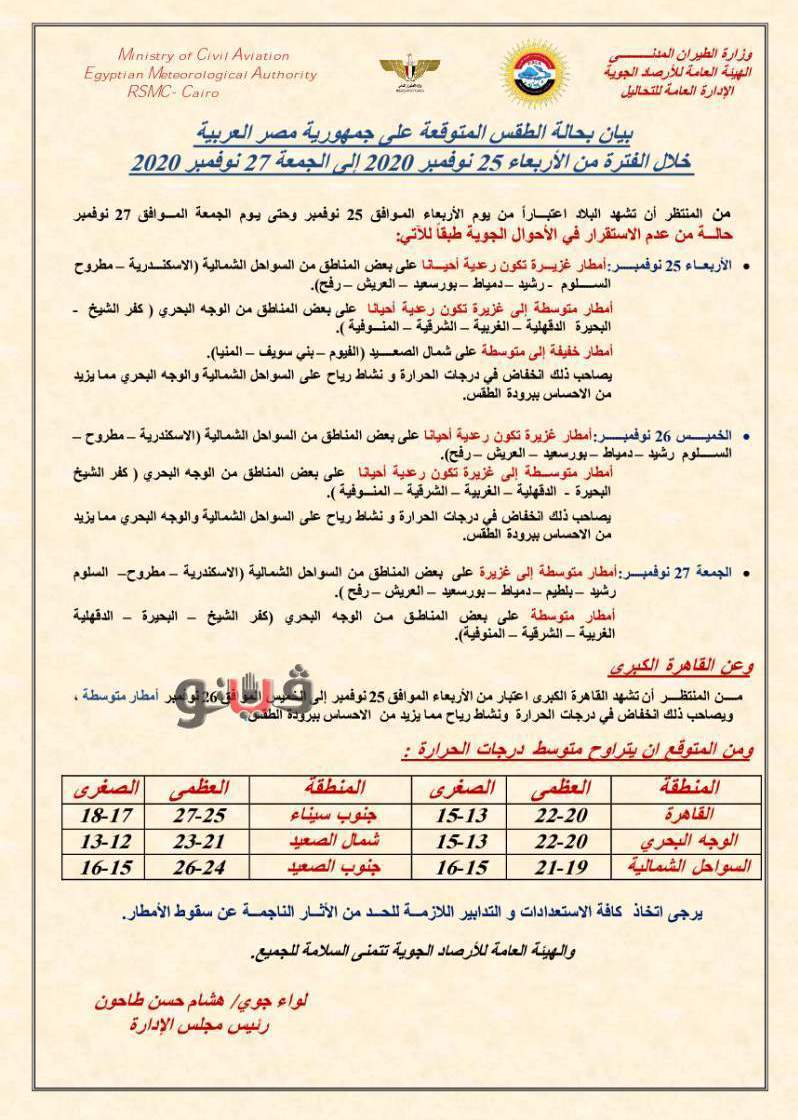 Ministry of Civil Aviation
Egyptian Meteorological Authority
RSMC- Cairo
وزارة الطيران المدني
الهيئة العامة للأرصاد الجوية
الإدارة العامة للتحاليل
بيان بحالة الطقس المتوقعة على جمهورية مصر العربية
خلال الفترة من الأربعاء 25 نوفمبر 2020 إلى الجمعة 27 نوفمبر 2020
من المنتظر أن تشهد البلاد اعتباراً من يوم الأربعاء الموافق 25 نوفمبر وحتى يوم الجمعة الموافق 27 نوفمبر
حالة من عدم الاستقرار في الأحوال الجوية طبقاً للآتي:
• الأربعاء 25 نوفمبر:أمطار غزيرة تكون رعدية أحيانا على بعض المناطق من السواحل الشمالية (الاسكندرية – مطروح
السلوم - رشيد – دمياط – بورسعيد – العريش – رفح).
أمطار متوسطة إلى غزيرة تكون رعدية أحيانا على بعض المناطق من الوجه البحري ( كفر الشيخ -
البحيرة الدقهلية – الغربية – الشرقية – المنوفية ).
أمطار خفيفة إلى متوسطة على شمال الصعيد (الفيوم – بني سويف – المنيا).
يصاحب ذلك انخفاض في درجات الحرارة و نشاط رياح على السواحل الشمالية والوجه البحري مما يزيد
من الاحساس ببرودة الطقس.
• الخميس 26 نوفمبر:أمطار غزيرة تكون رعدية أحيانا على بعض المناطق من السواحل الشمالية (الاسكندرية – مطروح –
السلوم رشيد – دمياط – بورسعيد – العريش – رفح).
أمطار متوسطة إلى غزيرة تكون رعدية أحيانا على بعض المناطق من الوجه البحري ( كفر الشيخ
البحيرة - الدقهلية – الغربية – الشرقية – المنوفية ).
يصاحب ذلك انخفاض في درجات الحرارة و نشاط رياح على السواحل الشمالية والوجه البحري مما يزيد
من الاحساس ببرودة الطقس.
• الجمعة 27 نوفمبر:أمطار متوسطة إلى غزيرة على بعض المناطق من السواحل الشمالية (الاسكندرية – مطروح– السلوم
رشيد – بلطيم – دمياط – بورسعيد – العريش – رفح ).
أمطار متوسطة على بعض المناطق من الوجه البحري (كفر الشيخ – البحيرة – الدقهلية
الغربية – الشرقية – المنوفية).
وعن القاهرة الكبرى
من المنتظر أن تشهد القاهرة الكبرى اعتبار من الأربعاء الموافق 25 نوفمبر إلى الخميس الموافق 26 نوفمبر أمطار متوسطة ،
ويصاحب ذلك انخفاض في درجات الحرارة ونشاط رياح مما يزيد من الاحساس ببرودة الطقس.
ڤيتو
ومن المتوقع ان يتراوح متوسط درجات الحرارة :
المنطقة العظمى الصغرى المنطقة العظمى الصغرى
القاهرة 22-20 15-13 جنوب سيناء 27-25 18-17
الوجه البحري 22-20 15-13 شمال الصعيد 23-21 13-12
السواحل الشمالية 21-19 16-15 جنوب الصعيد 26-24 16-15
يرجى اتخاذ كافة الاستعدادات و التدابير اللازمة للحد من الأثار الناجمة عن سقوط الأمطار.
والهيئة العامة للأرصاد الجوية تتمنى السلامة للجميع.
لواء جوي/ هشام حسن طاحون
رئيس مجلس الإدارة